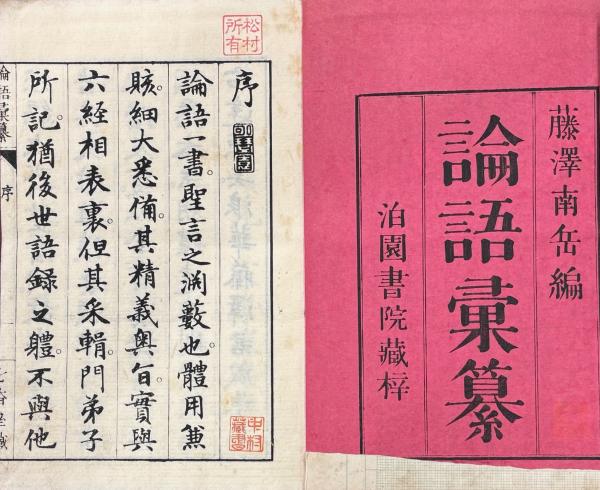 藤澤南岳編
論語彙纂
泊園書院藏梓
松村
所有
序
論語一書。聖言之渊藪也。體用兼
賅。細大悉備。其精義奧旨。實與
六经相表裏。但其采輯。門弟子
所記。猶後世語録之體。不與他
論語彙纂
序
中村
藏書